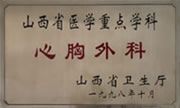 山西省医学重点学科
心胸外科
山西省卫生厅
一九九八年十月